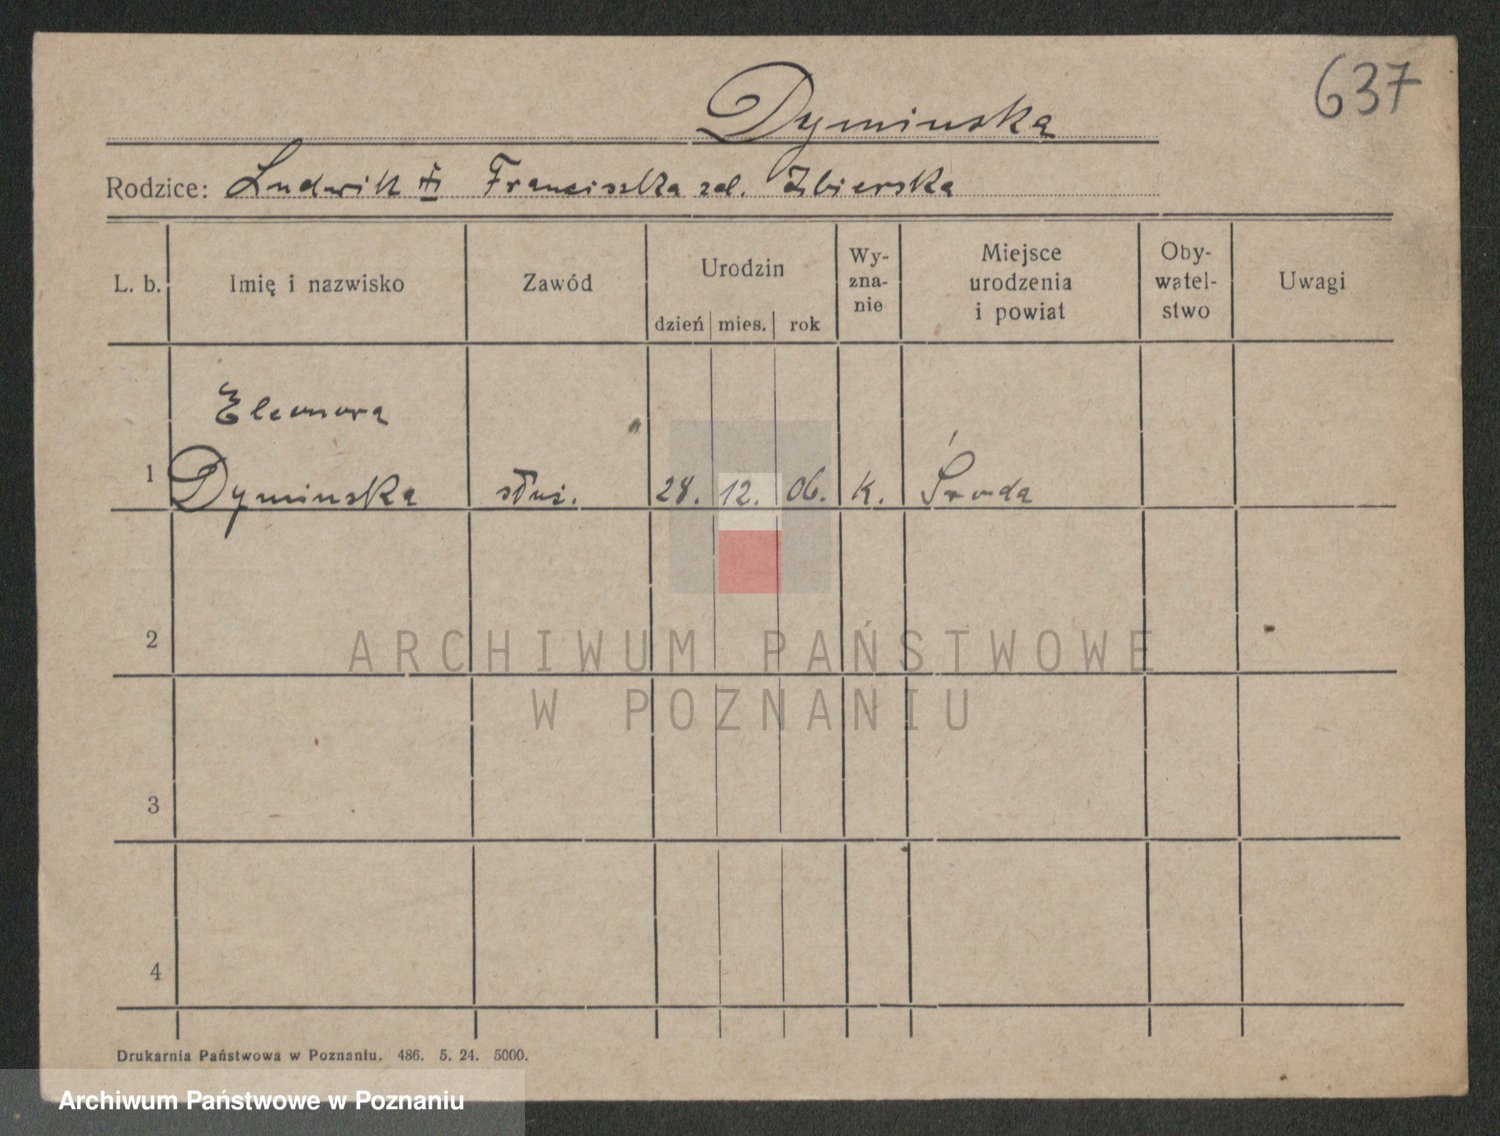 637
Dyminska
Rodzice: Ludwik Franciszka Zbierska
L. b. Imię i nazwisko Zawód Urodzin dzień mies. rok Wy-zna-nie Miejsce urodzenia i powiat Oby-watel-stwo Uwagi
Eleonora
1 Dyminska służ. 28. 12. 06. k. Środa
2
ARCHIWUM PAŃSTWOWE
W POZNANIU
3
4
Drukarnia Państwowa w Poznaniu. 486. 5. 24. 5000.
Archiwum Państwowe w Poznaniu